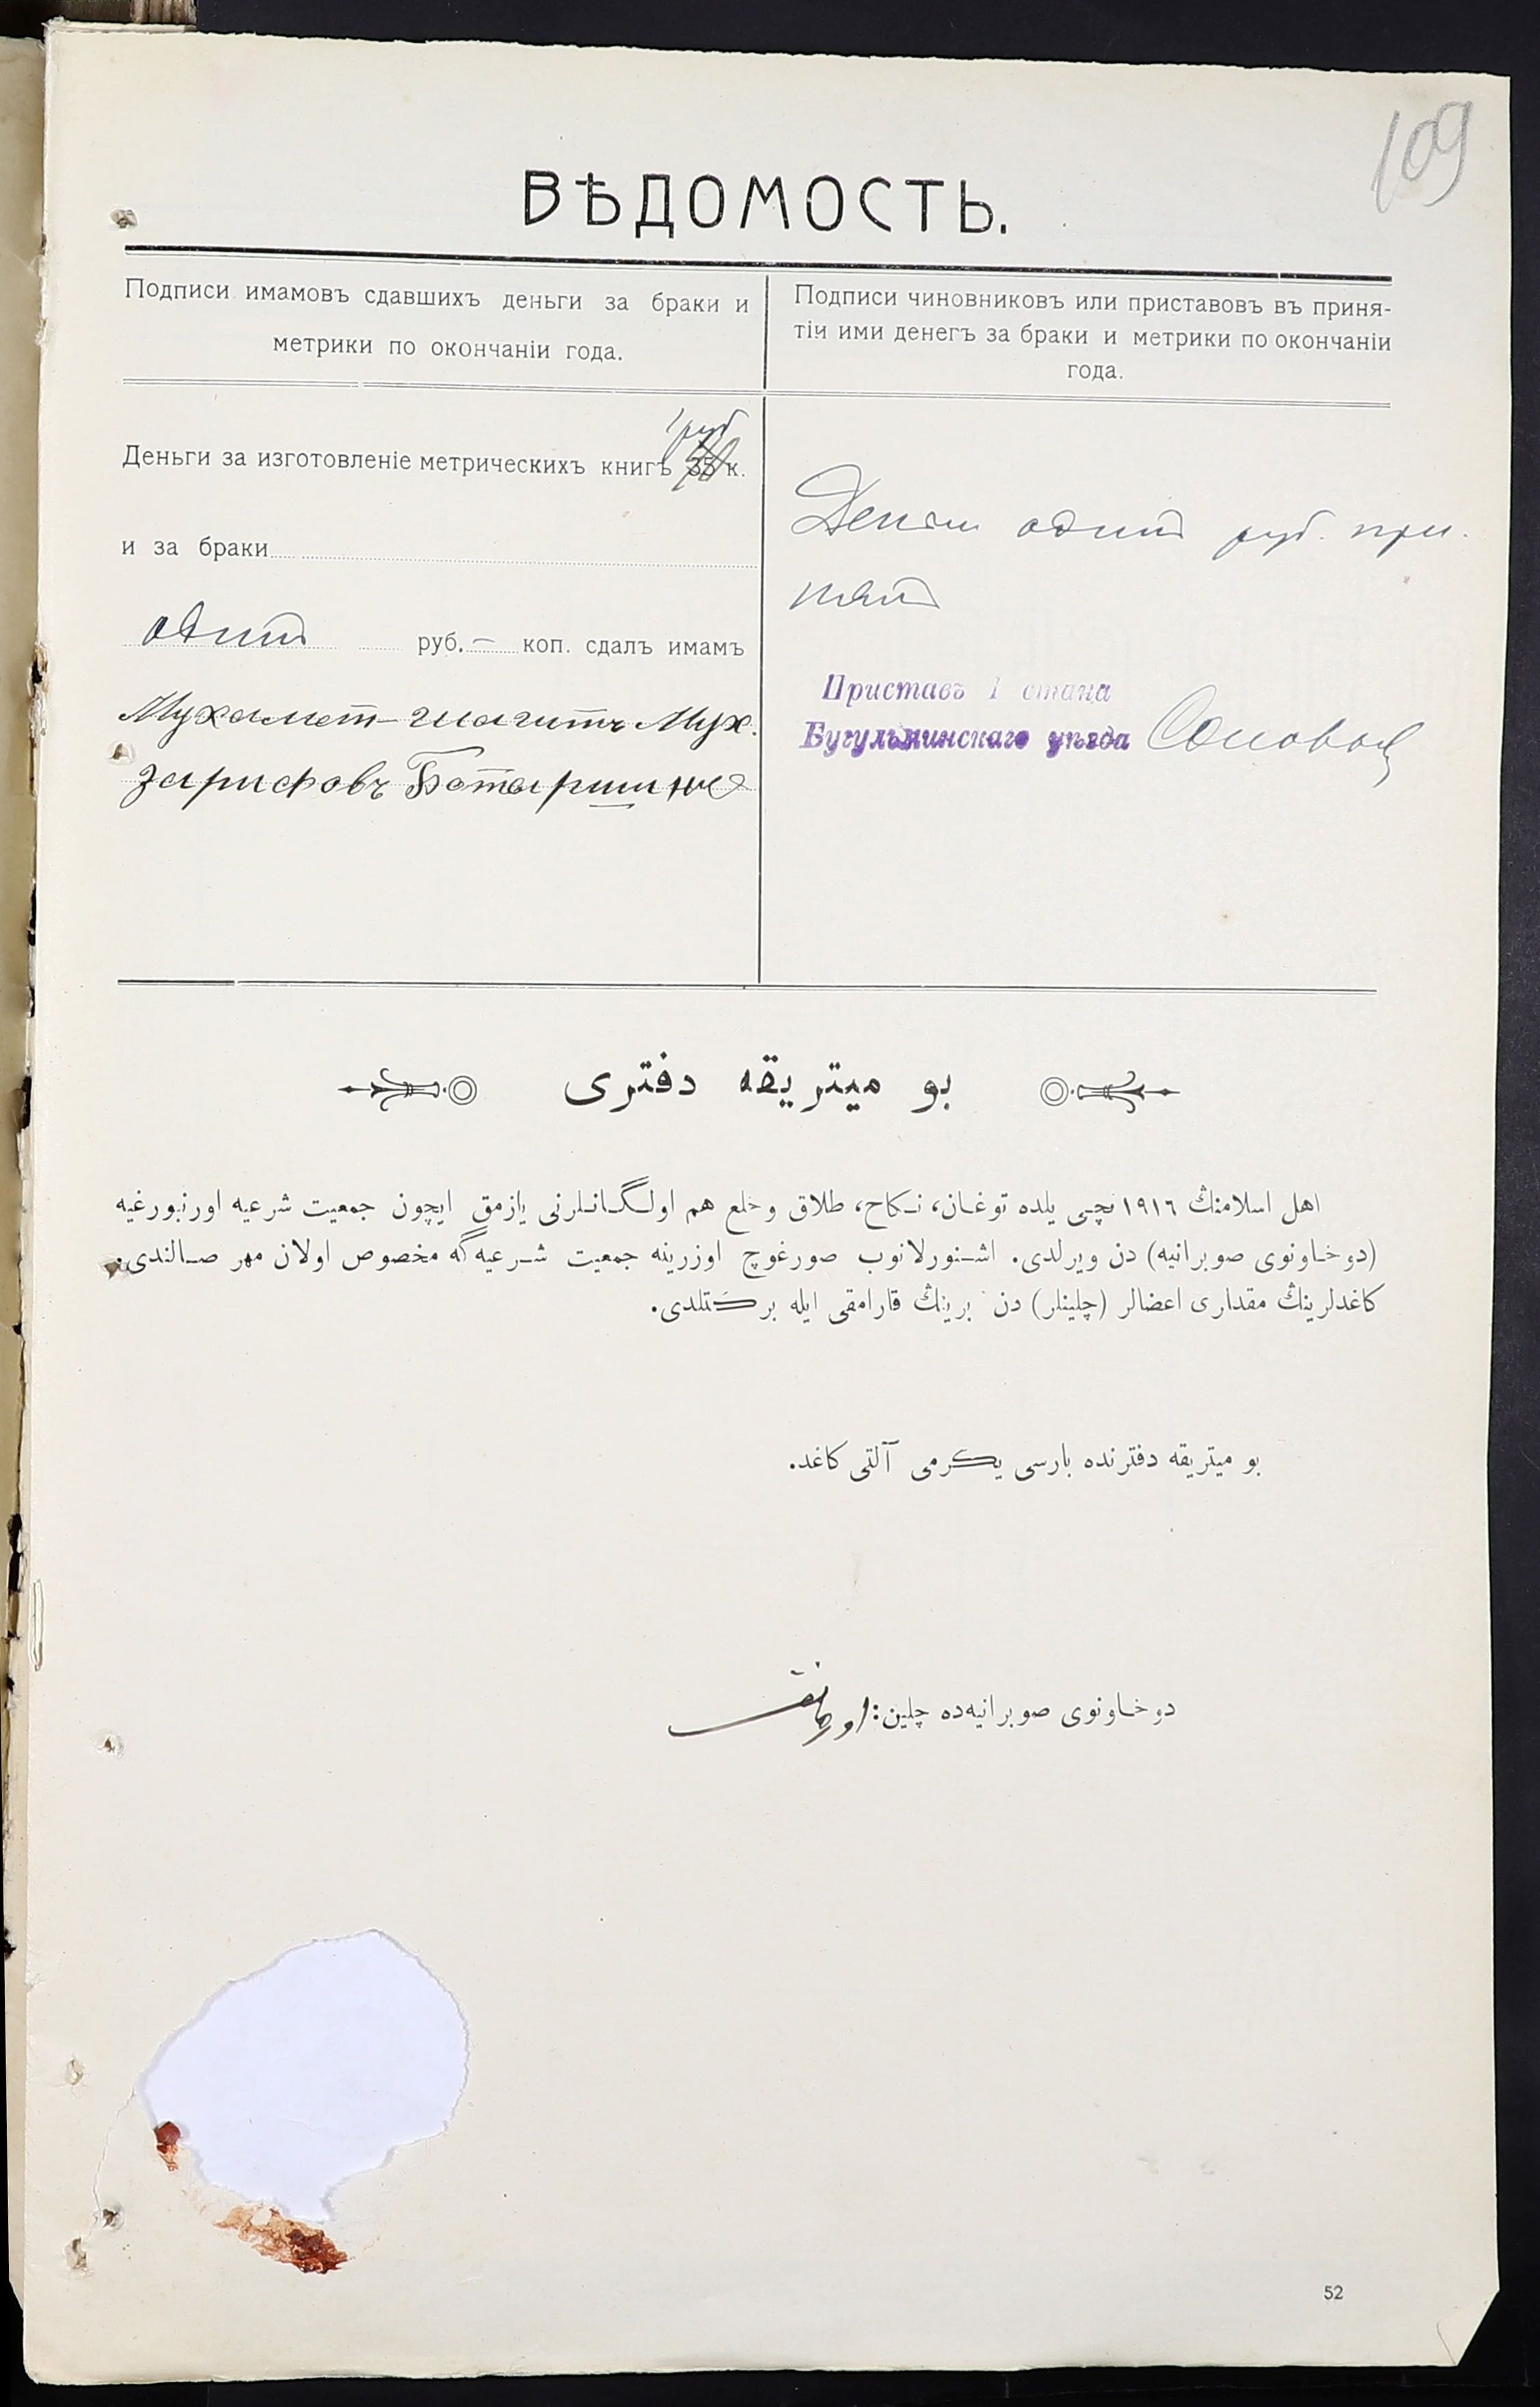 109
ВѢДОМОСТЬ.
Подписи имамовъ сдавшихъ деньги за браки и
метрики по окончаніи года.
Подписи чиновниковъ или приставовъ въ приня-
тіи ими денегъ за браки и метрики по окончаніи
года.
1 руб
Деньги за изготовленіе метрическихъ книгъ 35 к.
и за браки
одинъ руб. — коп. сдалъ имамъ
Мухамет-шагитъ Мух.
Зарифовъ Батаршинъ
Деньги одинъ руб. при-
нялъ
Приставъ 1 стана
Бугульминскаго уѣзда
بو میتریقه دفتری
اهل اسلامنڭ ١٩١٦ نچی یلده توغان، نکاح، طلاق وخلع هم اولگانلرنی یازمق ایچون جمعیت شرعیه اورنبورغیه
(دوخاونوی صوبرانیه) دن ویرلدی. اشنورلانوب صورغوچ اوزرینه جمعیت شرعیه‌گه مخصوص اولان مهر صالندی.
كاغدلرینڭ مقداری اعضالر (چلینلر) دن برینڭ قارامقی ایله بركتلدی.
بو میتریقه دفترنده بارسی یكرمی آلتی كاغد.
دوخاونوی صوبرانیه‌ده چلین:
52